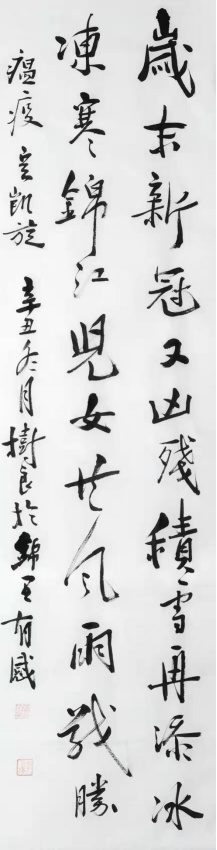 歲末新冠又凶殘積雪再添冰
凍寒錦江兒女共風雨戰勝
瘟疫享凱旋 辛丑冬月樹良於錦里有感